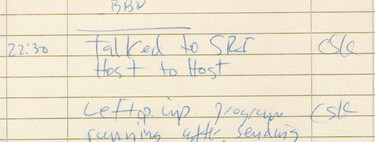 BBN
22:30 Talked to SRI CSK
Host to Host
Left op. imp. program CSK
running after sending